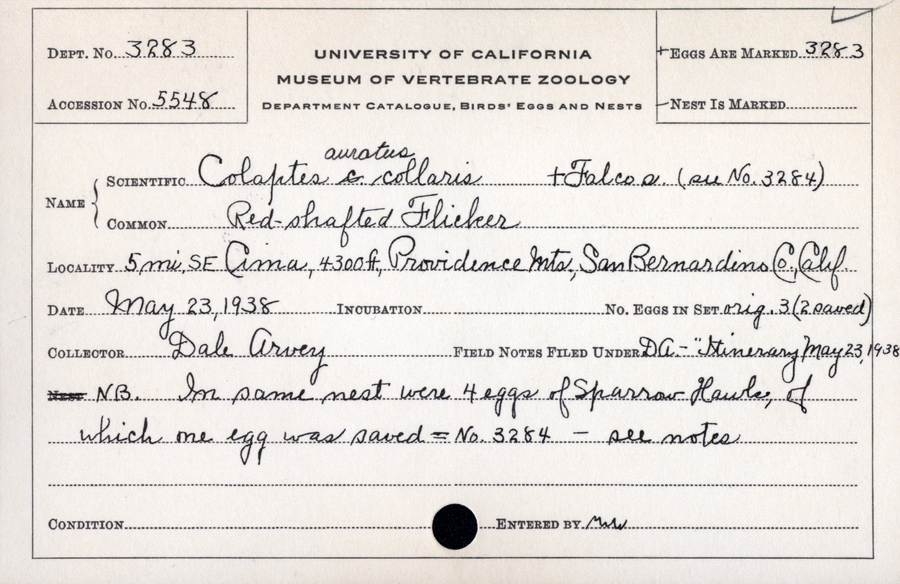 Dept. No. 3283
Accession No. 5548
UNIVERSITY OF CALIFORNIA
MUSEUM OF VERTEBRATE ZOOLOGY
Department Catalogue, Birds' Eggs and Nests
+Eggs Are Marked 3283
-Nest Is Marked
auratus
Name { Scientific Colaptes c. collaris +Falco s. (see No. 3284)
Common Red-shafted Flicker
Locality 5 mi, SE Cima, 4300 ft, Providence Mts., San Bernardino Co., Calif.
Date May 23, 1938 Incubation No. Eggs in Set orig. 3 (2 saved)
Collector Dale Arvey Field Notes Filed Under DA.- "Itinerary May 23, 1938
Nest NB. In same nest were 4 eggs of Sparrow Hawk, of
which one egg was saved = No. 3284 - see notes
Condition Entered by